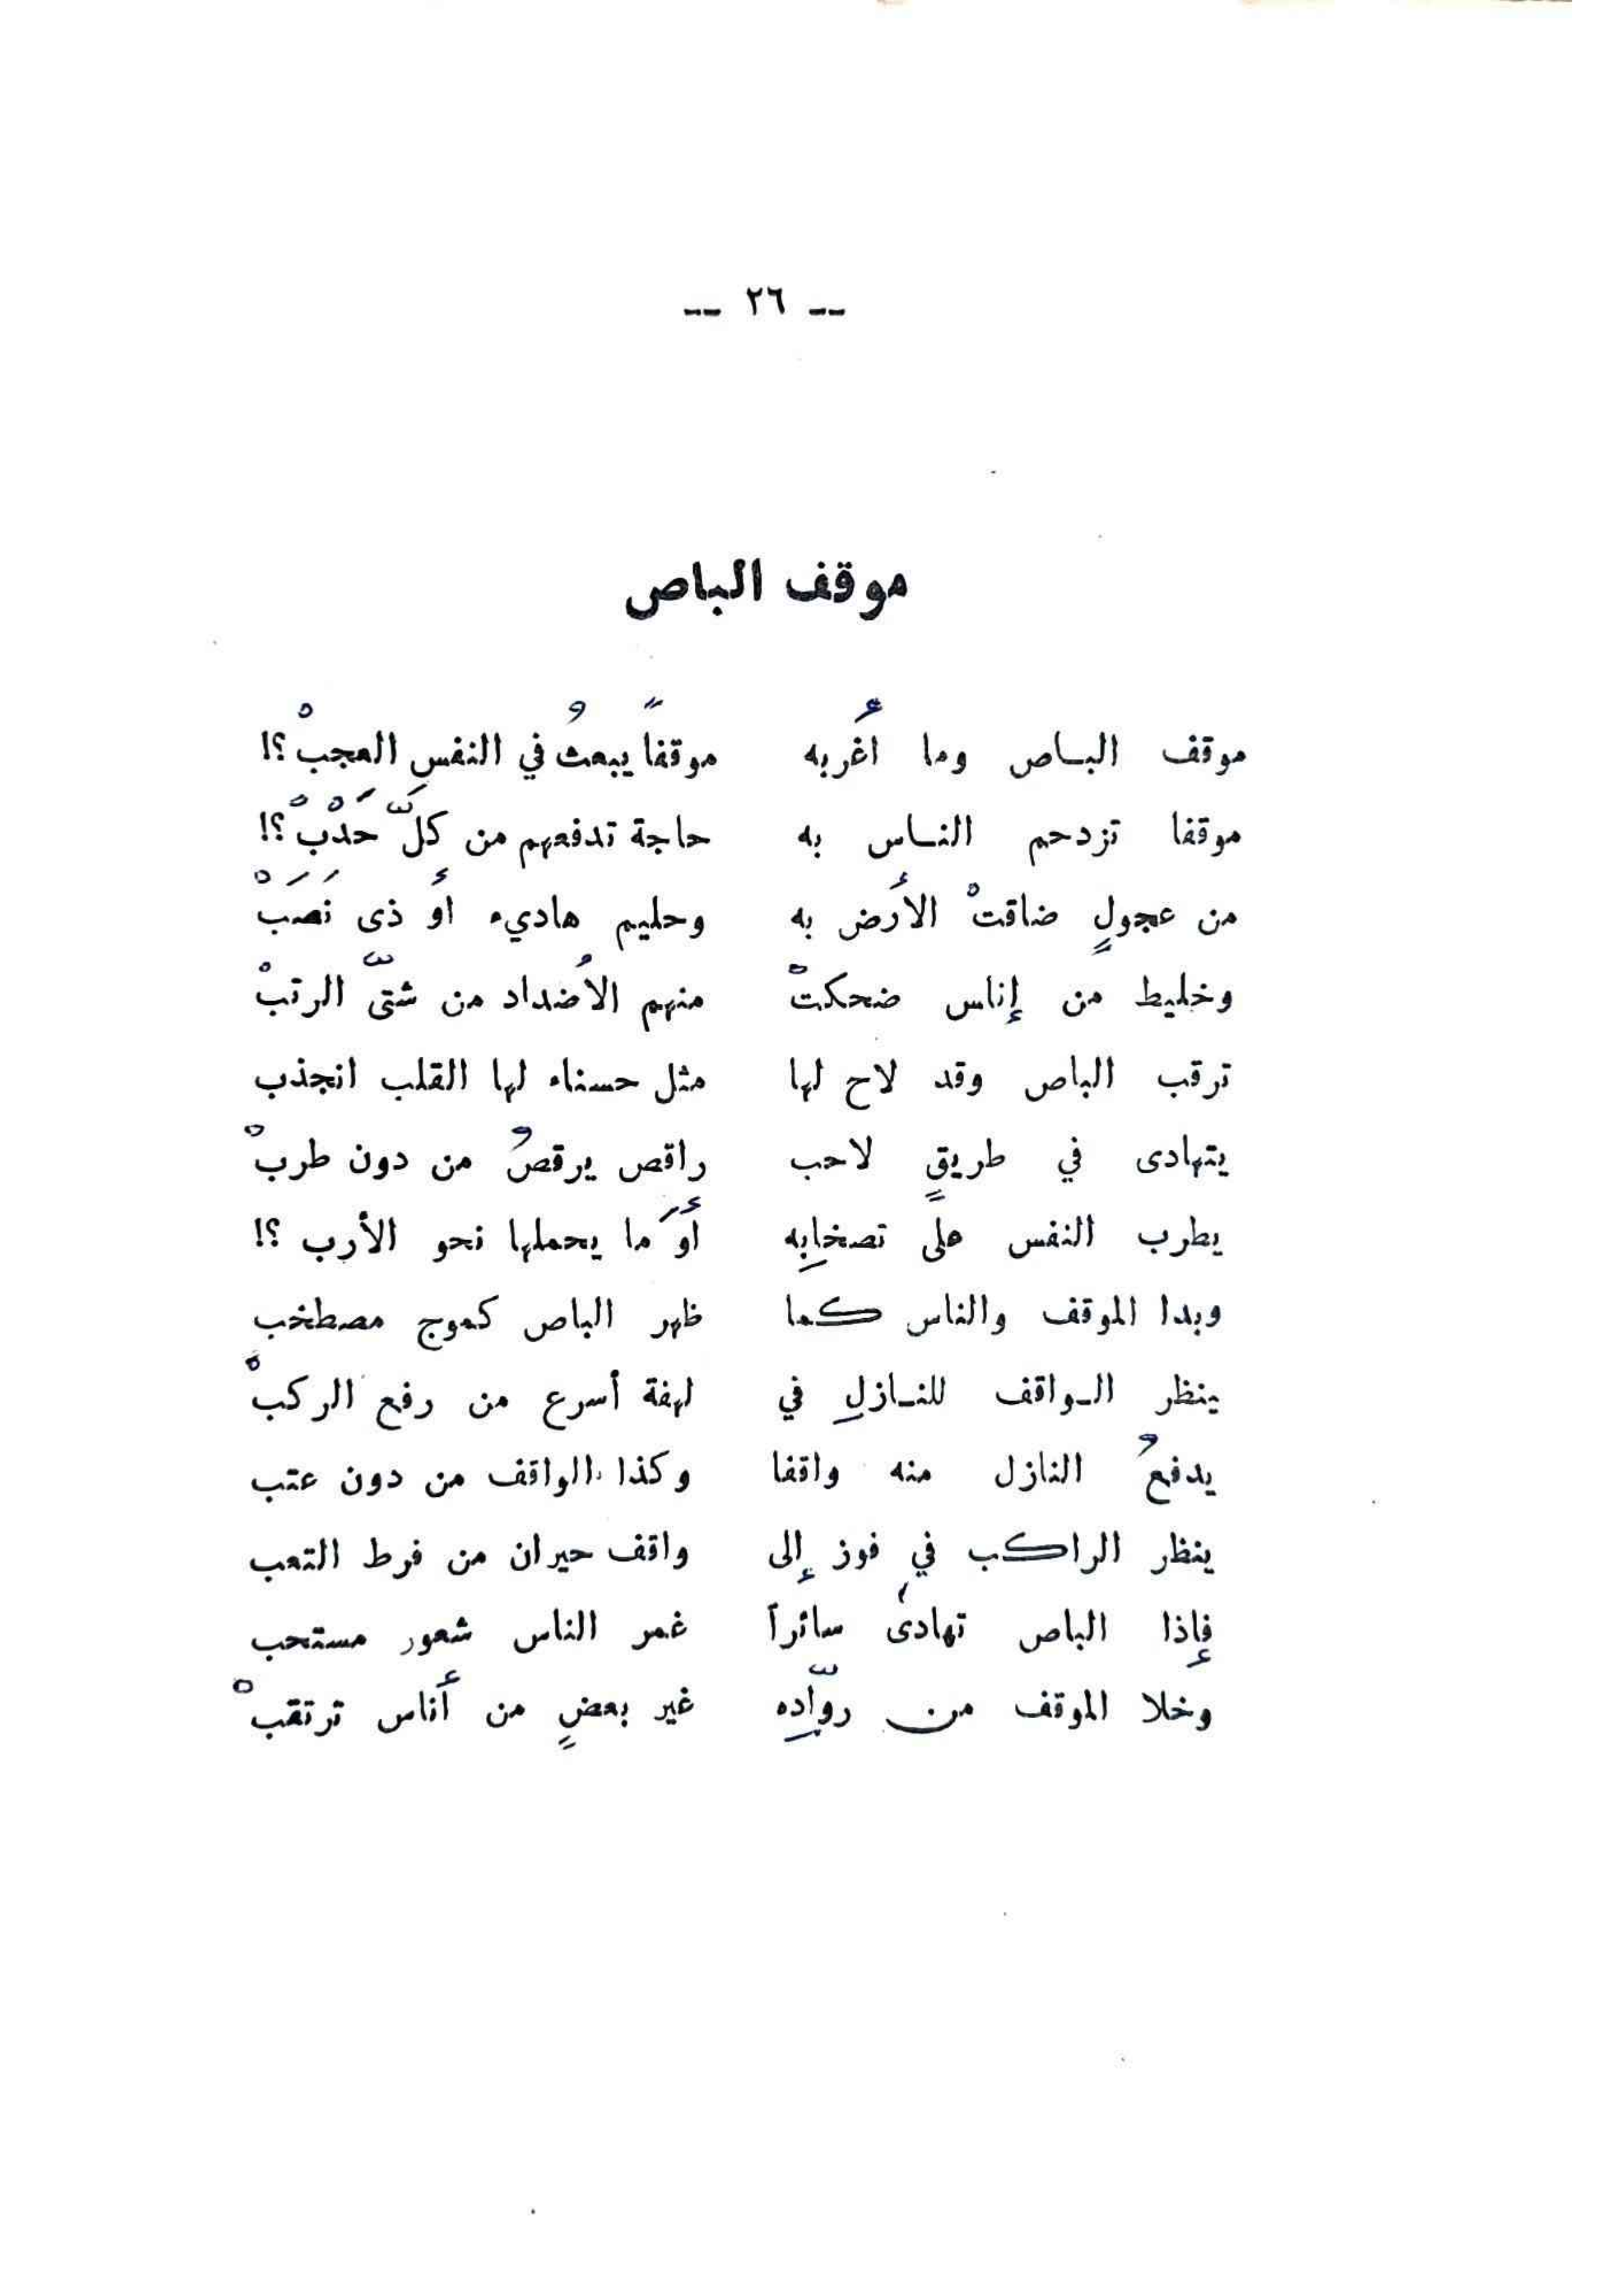 -- ٢٦ --
موقف الباص
موقف البـاص وما أغربه موقفاً يبعثُ في النفسِ العجبْ ؟!
موقفا تزدحم النـاس به حاجة تدفعهم من كَلِّ حَدْبْ ؟!
من عجولٍ ضاقتْ الأرض به وحليم هاديء أو ذى نَصَبْ
وخليط من إناس ضحكتْ منهم الأضداد من شتىّ الرتبْ
ترقب الباص وقد لاح لها مثل حسناء لها القلب انجذب
يتهادى في طريقٍ لاحب راقص يرقصُ من دون طربْ
يطرب النفس على تصخابِه أوَ ما يحملها نحو الأرب ؟!
وبدا الموقف والناس كما ظهر الباص كموج مصطخب
ينظر الـواقف للنـازلِ في لهفة أسرع من رفع الركبْ
يدفعُ النازل منه واقفا وكذا الواقف من دون عتب
ينظر الراكب في فوز إلى واقف حيران من فرط التعب
فإذا الباص تهادىٰ سائراً غمر الناس شعور مستحب
وخلا الموقف من روّادِه غير بعضٍ من أناس ترتقبْ